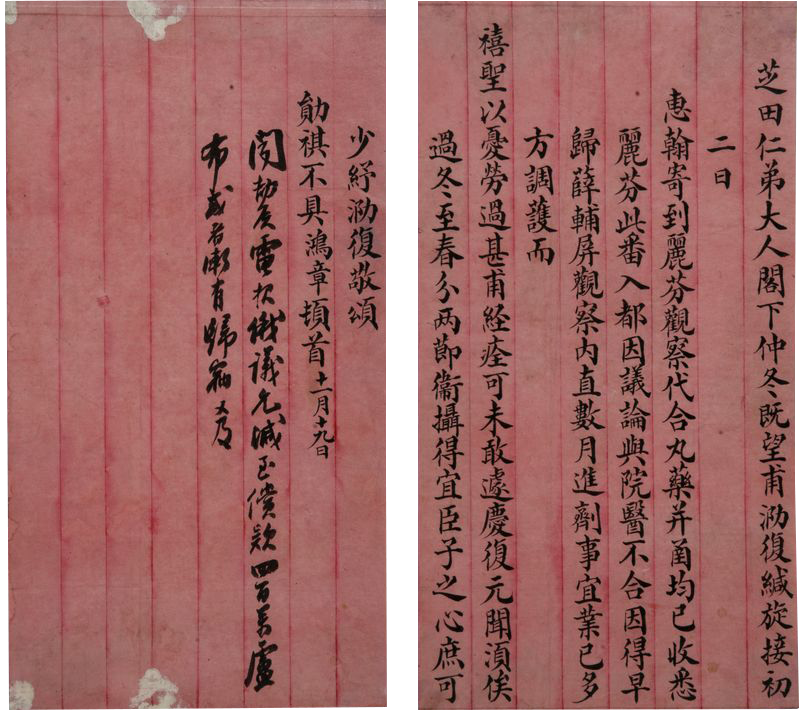 芝田仁弟大人閣下仲冬既望甫泐復緘旋接初
二日
惠翰寄到麗芬觀察代合丸藥并圅均已收悉
麗芬此番入都因議論與院醫不合因得早
歸薛輔屏觀察內直數月進劑事宜業已多
方調護而
禧聖以憂勞過甚甫經痊可未敢遽慶復元聞須俟
過冬至春分两節衛攝得宜臣子之心庶可
少紓泐復敬頌
勛祺不具鴻章頓首十一月十九日
劼侯電報俄議允減至償款四百萬盧
布或者漸有歸宿又及